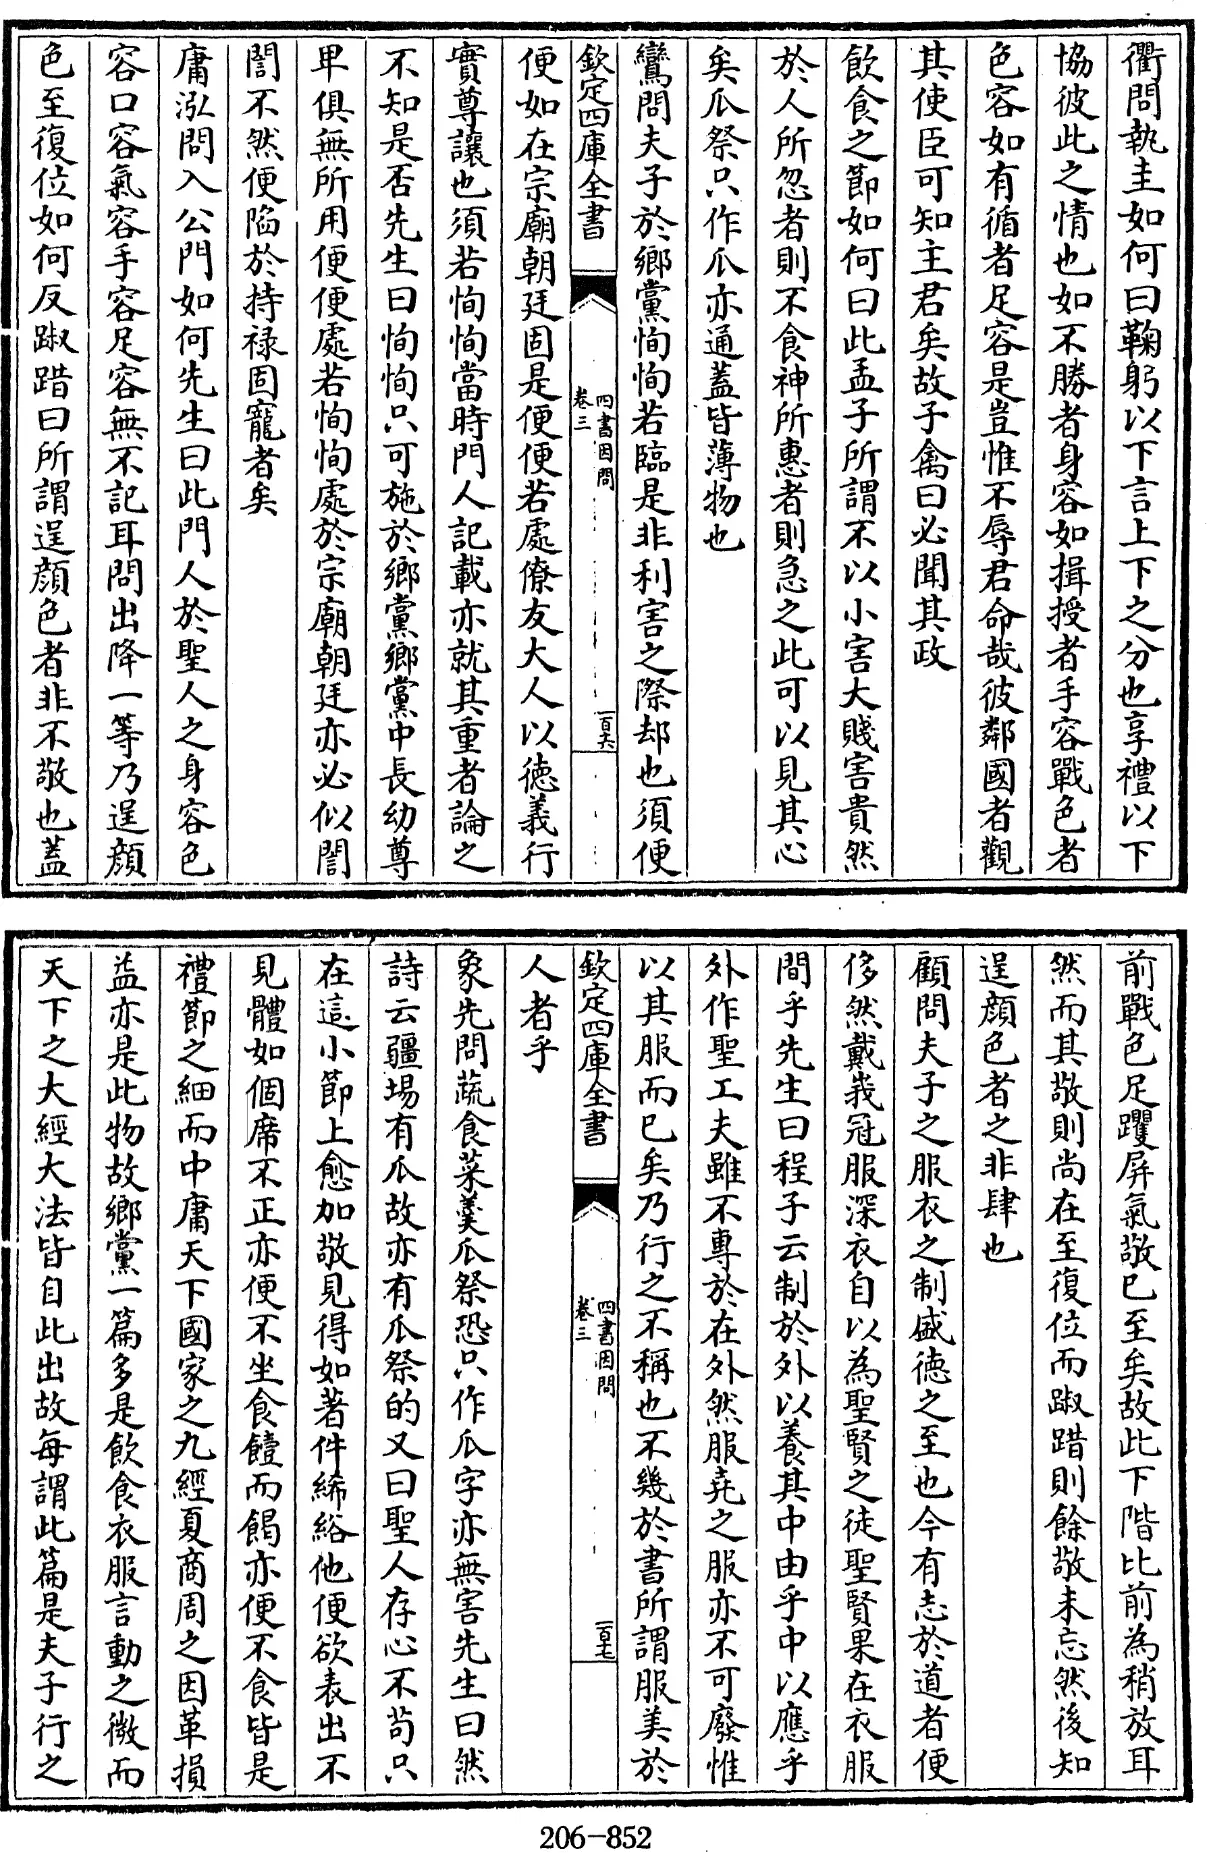 衢問執圭如何曰鞠躬以下言上下之分也享禮以下
協彼此之情也如不勝者身容如揖授者手容戰色者
色容如有循者足容是豈惟不辱君命哉彼鄰國者觀
其使臣可知主君矣故子禽曰必聞其政
飲食之節如何曰此孟子所謂不以小害大賤害貴然
於人所忽者則不食神所惠者則急之此可以見其心
矣瓜祭只作瓜亦通蓋皆薄物也
鸞問夫子於鄉黨恂恂若臨是非利害之際却也須便
欽定四庫全書
四書因問
卷三
一百六
便如在宗廟朝廷固是便便若處僚友大人以德義行
實尊讓也須若恂恂當時門人記載亦就其重者論之
不知是否先生曰恂恂只可施於鄉黨鄉黨中長幼尊
卑俱無所用便便處若恂恂處於宗廟朝廷亦必似誾
誾不然便陷於持祿固寵者矣
庸泓問入公門如何先生曰此門人於聖人之身容色
容口容氣容手容足容無不記耳問出降一等乃逞顏
色至復位如何反踧踖曰所謂逞顏色者非不敬也蓋
前戰色足躩屏氣敬已至矣故此下階比前為稍放耳
然而其敬則尚在至復位而踧踖則餘敬未忘然後知
逞顏色者之非肆也
顧問夫子之服衣之制盛德之至也今有志於道者便
侈然戴峩冠服深衣自以為聖賢之徒聖賢果在衣服
間乎先生曰程子云制於外以養其中由乎中以應乎
外作聖工夫雖不專於在外然服堯之服亦不可廢惟
以其服而已矣乃行之不稱也不幾於書所謂服美於
欽定四庫全書
四書因問
卷三
一百七
人者乎
象先問蔬食菜羹瓜祭恐只作瓜字亦無害先生曰然
詩云疆埸有瓜故亦有瓜祭的又曰聖人存心不苟只
在這小節上愈加敬見得如著件絺綌他便欲表出不
見體如個席不正亦便不坐食饐而餲亦便不食皆是
禮節之細而中庸天下國家之九經夏商周之因革損
益亦是此物故鄉黨一篇多是飲食衣服言動之微而
天下之大經大法皆自此出故每謂此篇是夫子行之
206-852